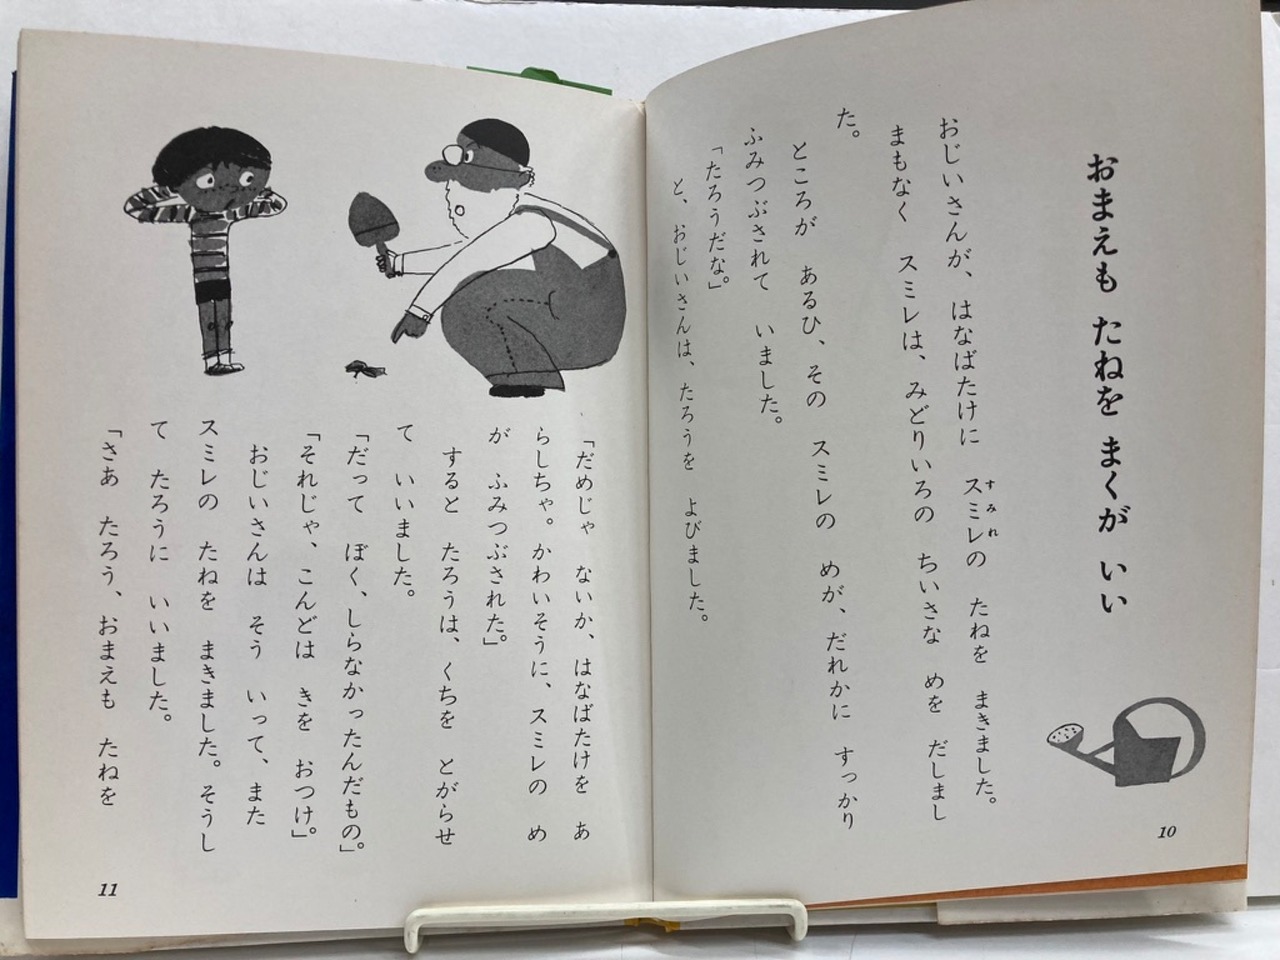 おまえも たねを まくが いい
おじいさんが、はなばたけに スミレの たねを まきました。
すみれ
まもなく スミレは、みどりいろの ちいさな めを だしまし
た。
ところが あるひ、その スミレの めが、だれかに すっかり
ふみつぶされて いました。
「たろうだな。」
と、おじいさんは、たろうを よびました。
10
「だめじゃ ないか、はなばたけを あ
らしちゃ。かわいそうに、スミレの め
が ふみつぶされた。」
すると たろうは、くちを とがらせ
て いいました。
「だって ぼく、しらなかったんだもの。」
「それじゃ、こんどは きを おつけ。」
おじいさんは そう いって、また
スミレの たねを まきました。そうし
て たろうに いいました。
「さあ たろう、おまえも たねを
11